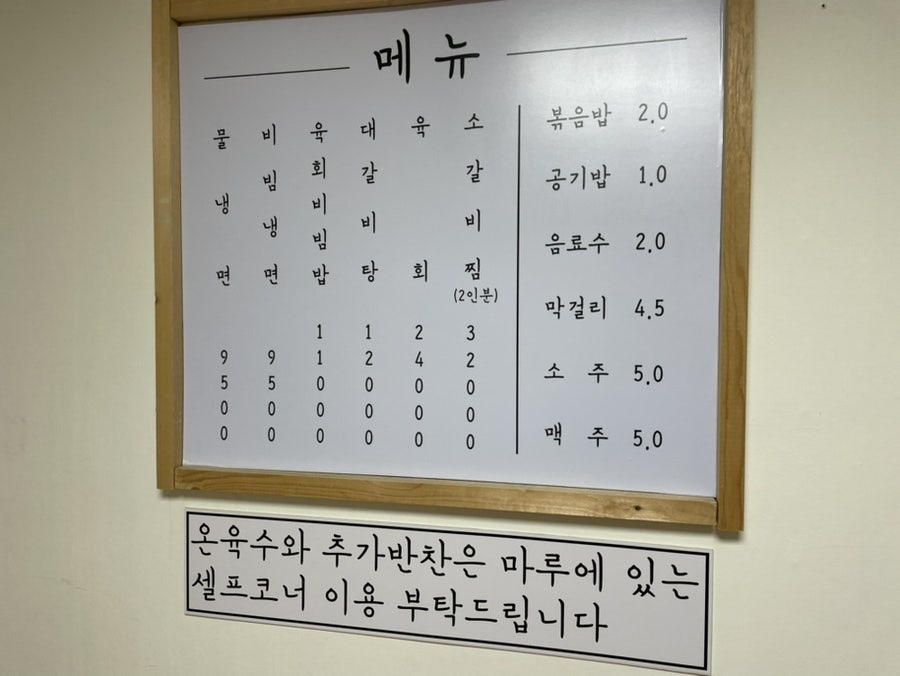 메뉴
물냉면 9500
비빔냉면 9500
육회비빔밥 11000
대갈비탕 12000
육회 24000
소갈비찜 (2인분) 32000
볶음밥 2.0
공기밥 1.0
음료수 2.0
막걸리 4.5
소 주 5.0
맥 주 5.0
온육수와 추가반찬은 마루에 있는
셀프코너 이용 부탁드립니다